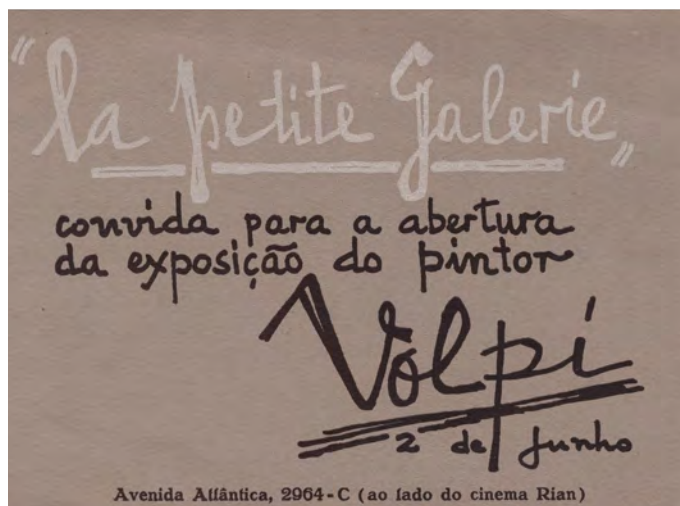 "la petite Galerie"
convida para a abertura
da exposição do pintor
Volpi
2 de Junho
Avenida Atlântica, 2964-C (ao lado do cinema Rian)